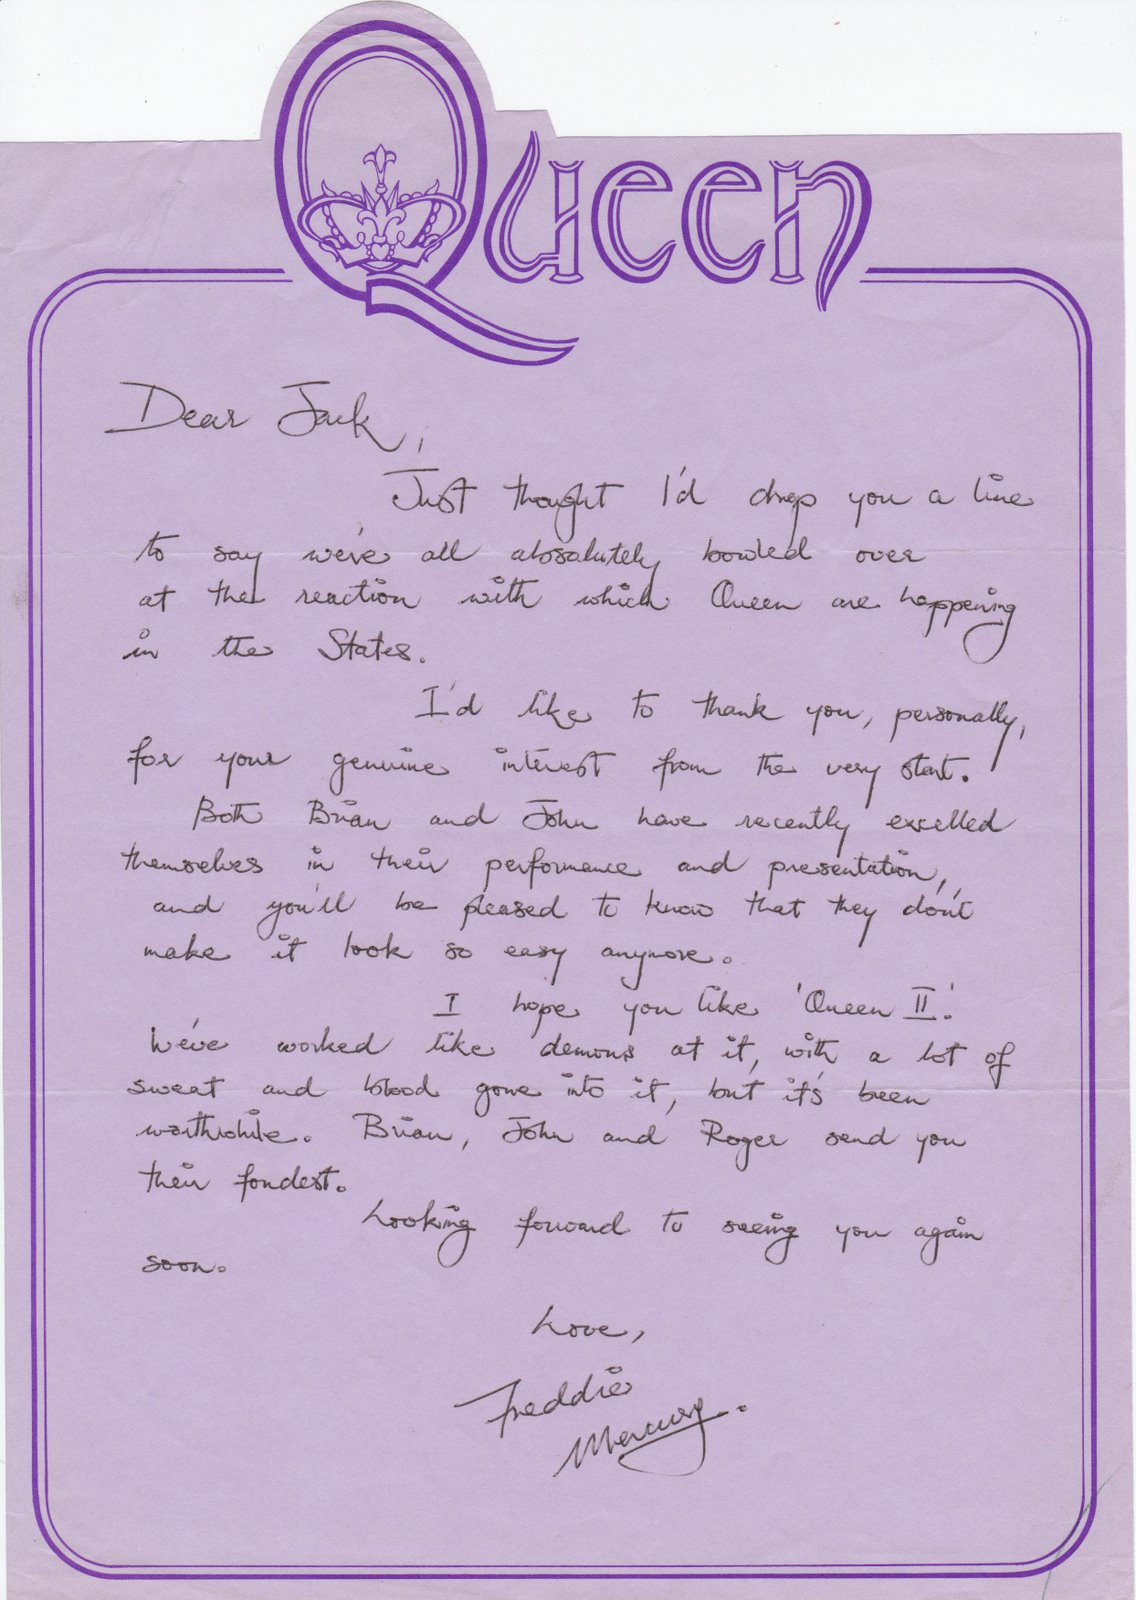 Queen
Dear Jack,
Just thought I'd drop you a line
to say we've all absolutely bowled over
at the reaction with which Queen are happening
in the States.
I'd like to thank you, personally,
for your genuine interest from the very start.
Both Brian and John have recently excelled
themselves in their performance and presentation,
and you'll be pleased to know that they don't
make it look so easy anymore.
I hope you like 'Queen II'.
We've worked like demons at it, with a lot of
sweat and blood gone into it, but it's been
worthwhile. Brian, John and Roger send you
their fondest.
Looking forward to seeing you again
soon.
Love,
Freddie
Mercury.